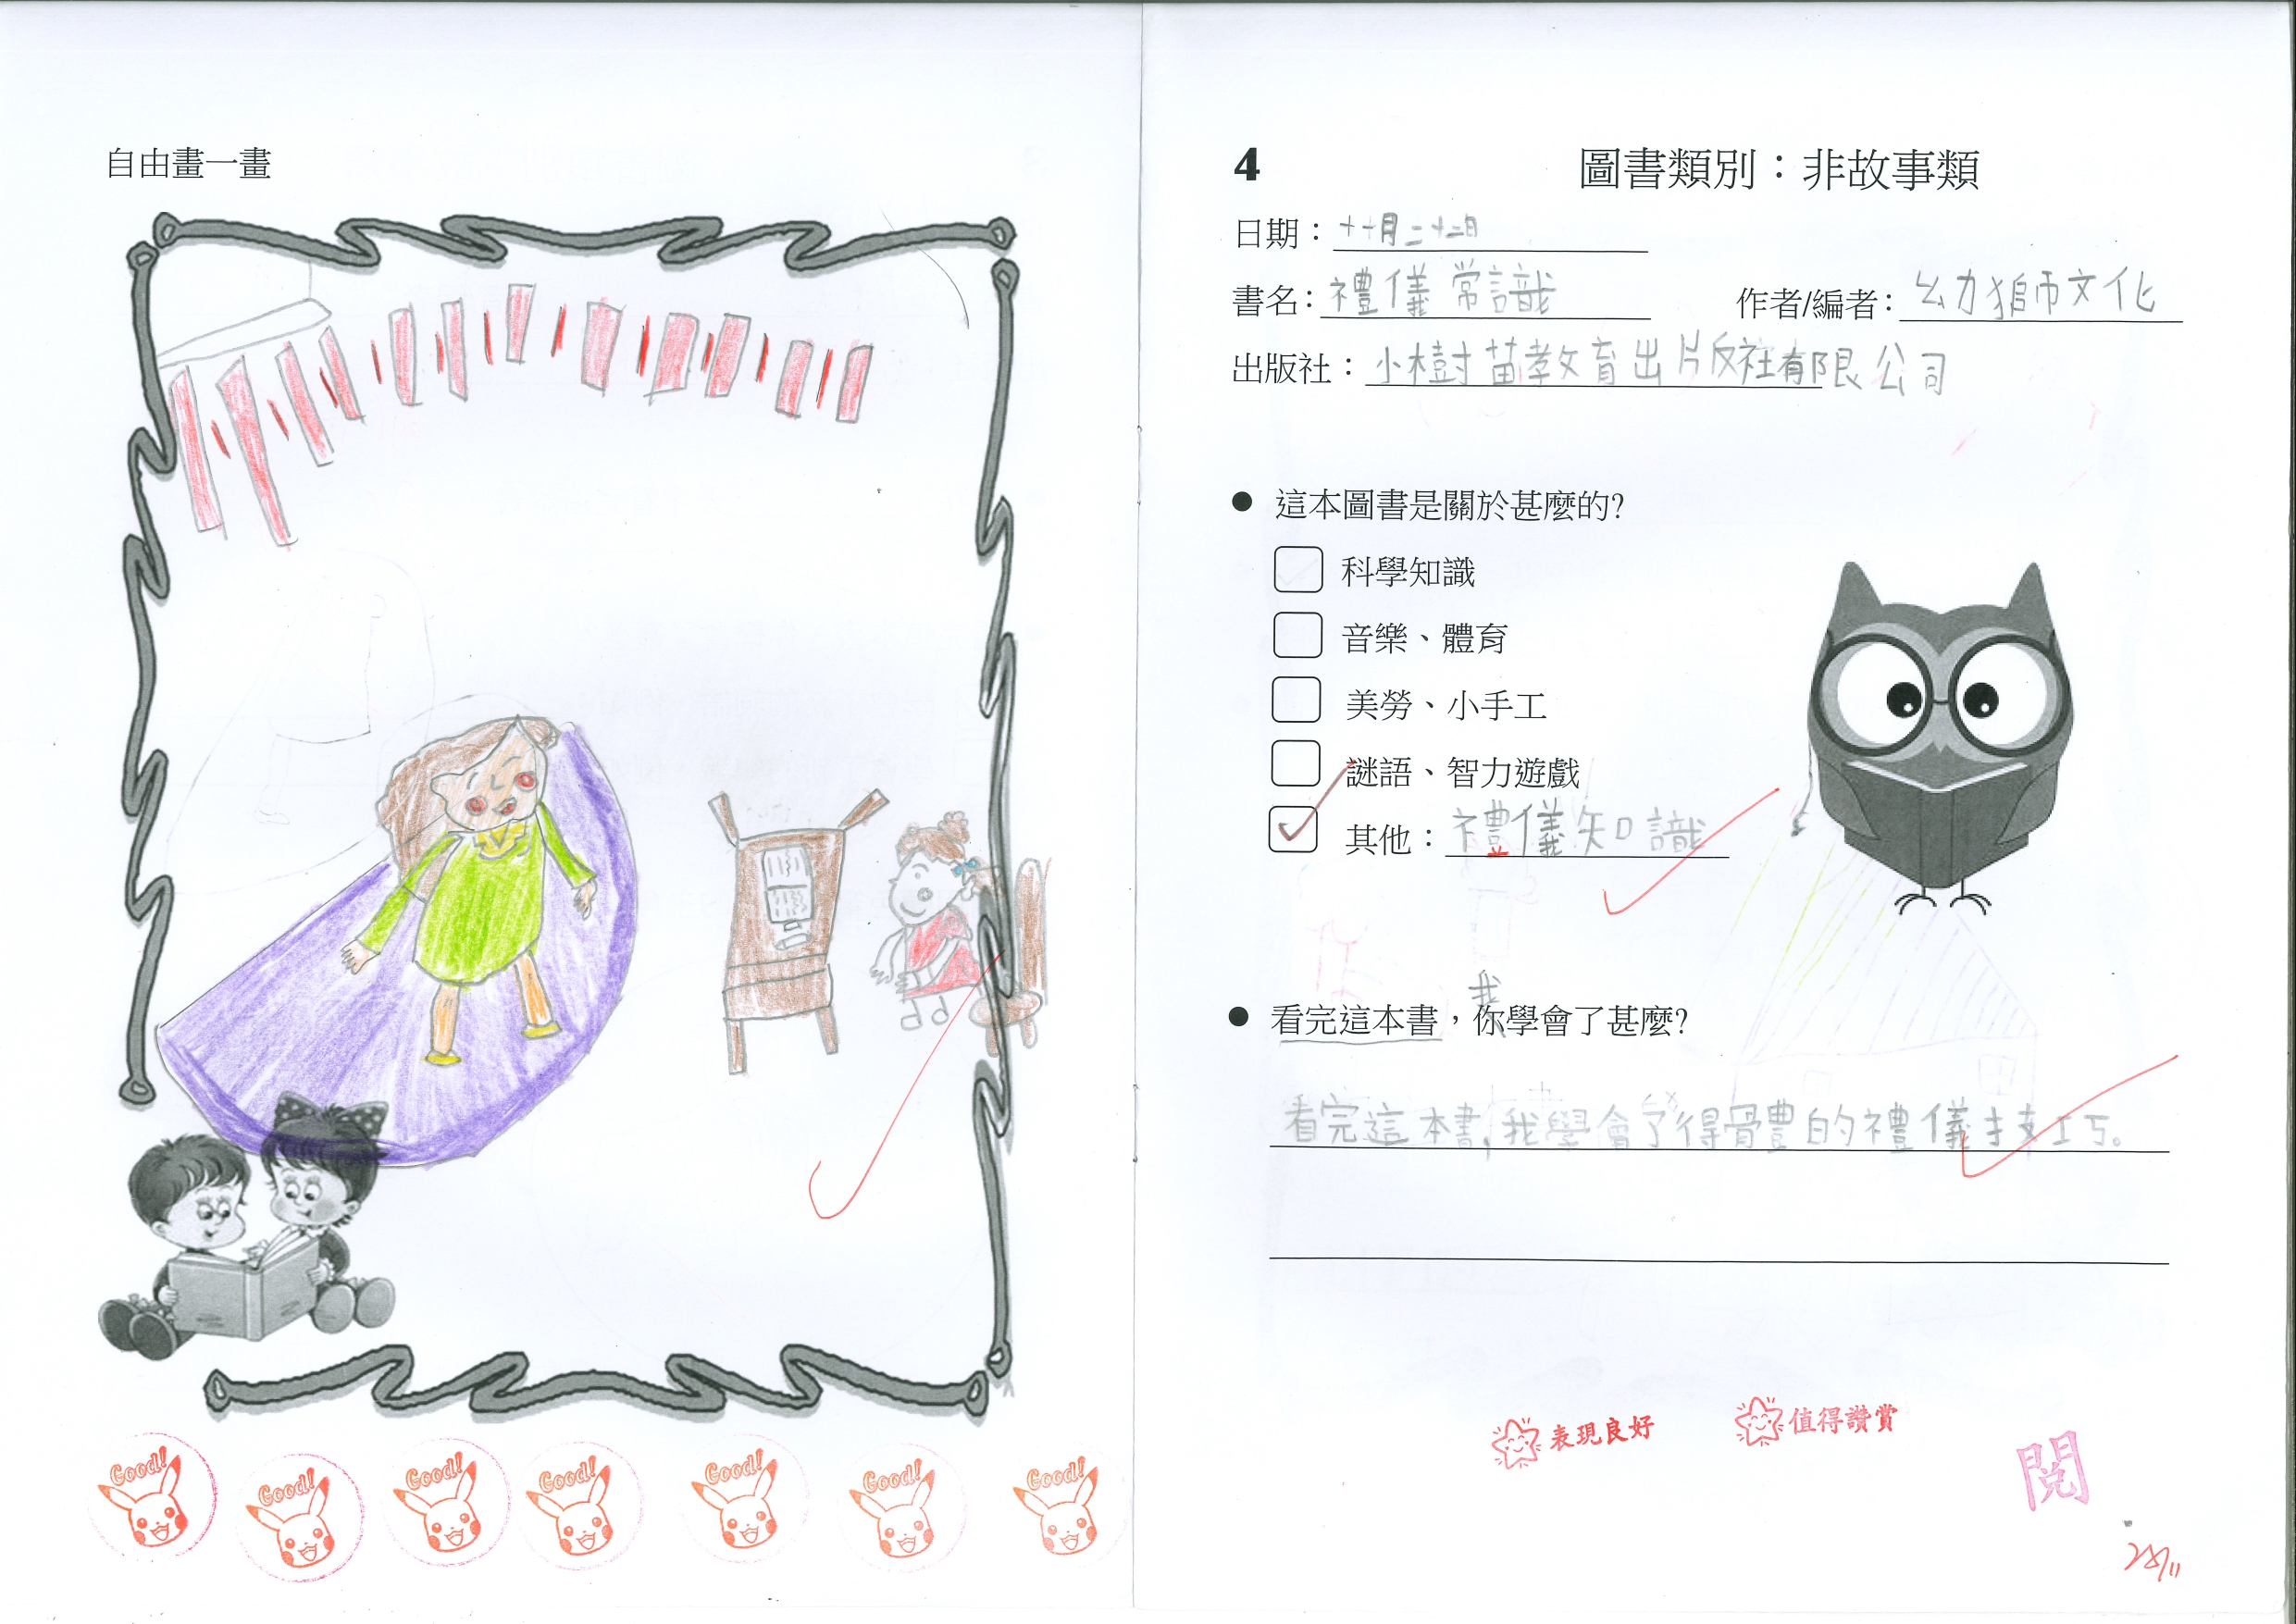 自由畫一畫
Good! Good! Good! Good! Good! Good! Good!
4 圖書類別：非故事類
日期：十一月二十二日
書名：禮儀常識 作者/編者：幼獅文化
出版社：小樹苗教育出版社有限公司
● 這本圖書是關於甚麼的?
科學知識
音樂、體育
美勞、小手工
謎語、智力遊戲
其他：禮儀知識
我
● 看完這本書，你學會了甚麼?
看完這本書，我學會了得體的禮儀技巧。
表現良好 值得讚賞
閱
28/11